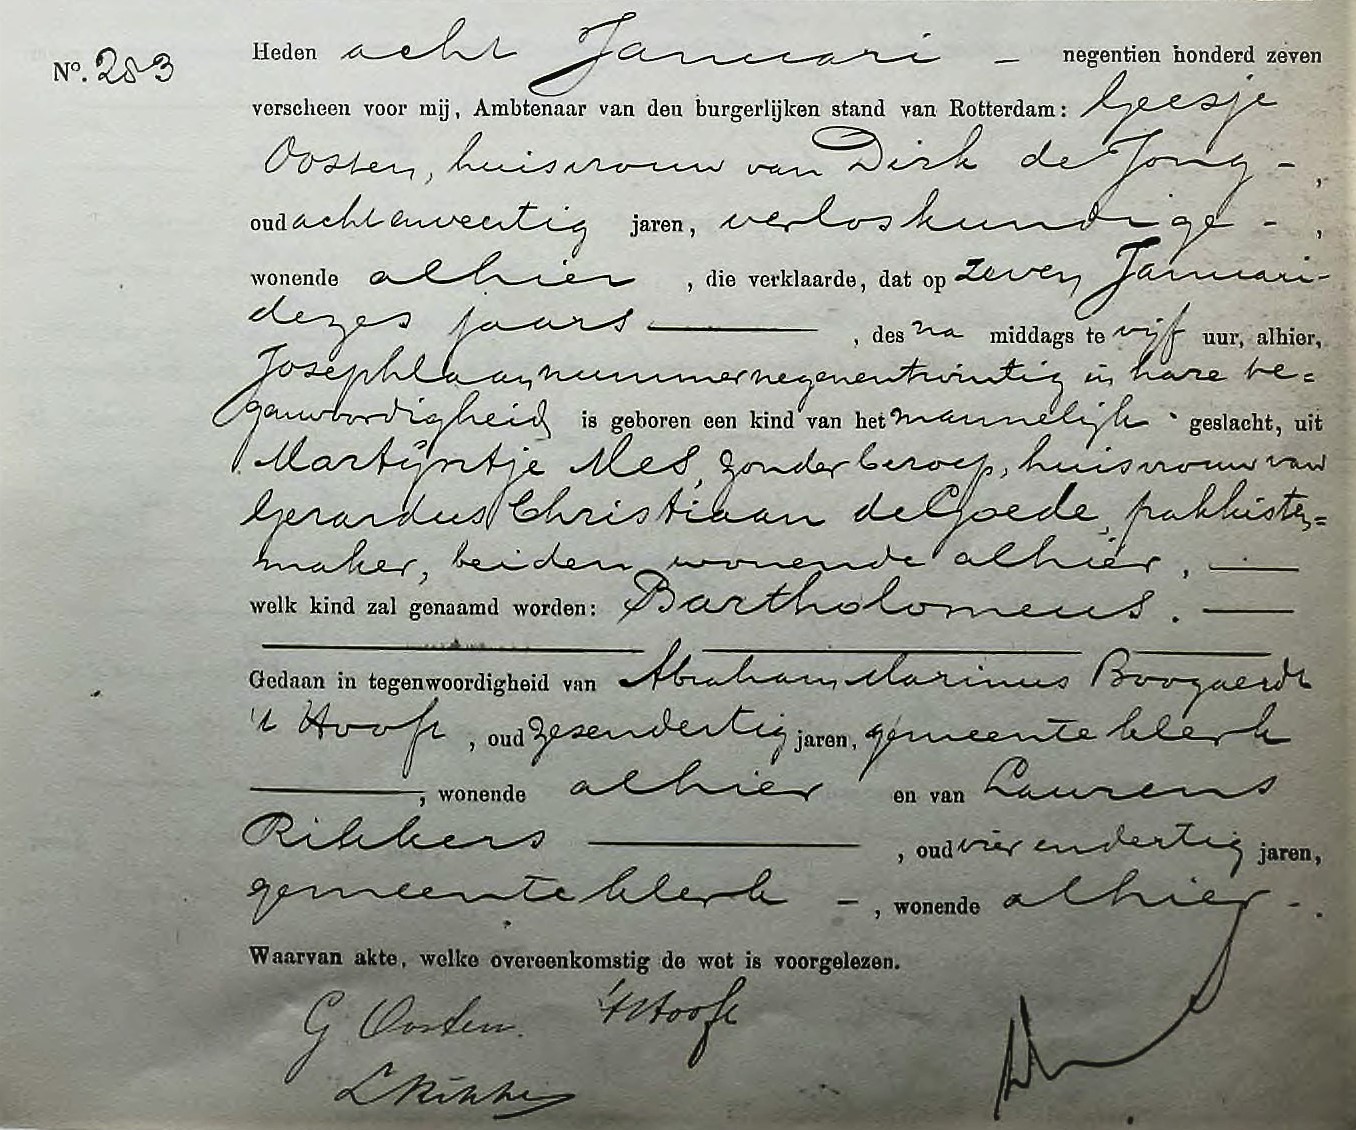 Nº. 283
Heden acht Januari — negentien honderd zeven
verscheen voor mij, Ambtenaar van den burgerlijken stand van Rotterdam: Geesje
Oosten, huisvrouw van Dirk de Jong - ,
oud achtenveertig jaren, verloskundige - ,
wonende alhier , die verklaarde, dat op zeven Januari
dezes jaars — , des na middags te vijf uur, alhier,
Josephlaan nummer negenentwintig in hare te=
genwoordigheid is geboren een kind van het mannelijk geslacht, uit
Martijntje Mes, zonder beroep, huisvrouw van
Gerardus Christiaan de Goede, pakkisten=
maker, beiden wonende alhier, —
welk kind zal genaamd worden: Bartholomeus. —
Gedaan in tegenwoordigheid van Abraham Marinus Boogaerdt
't Hooft , oud zesendertig jaren, gemeenteklerk
—, wonende alhier en van Laurens
Rikkers — , oud vierendertig jaren,
gemeenteklerk - , wonende alhier - .
Waarvan akte, welke overeenkomstig de wet is voorgelezen.
G. Oosten. 't Hooft
L Rikkers